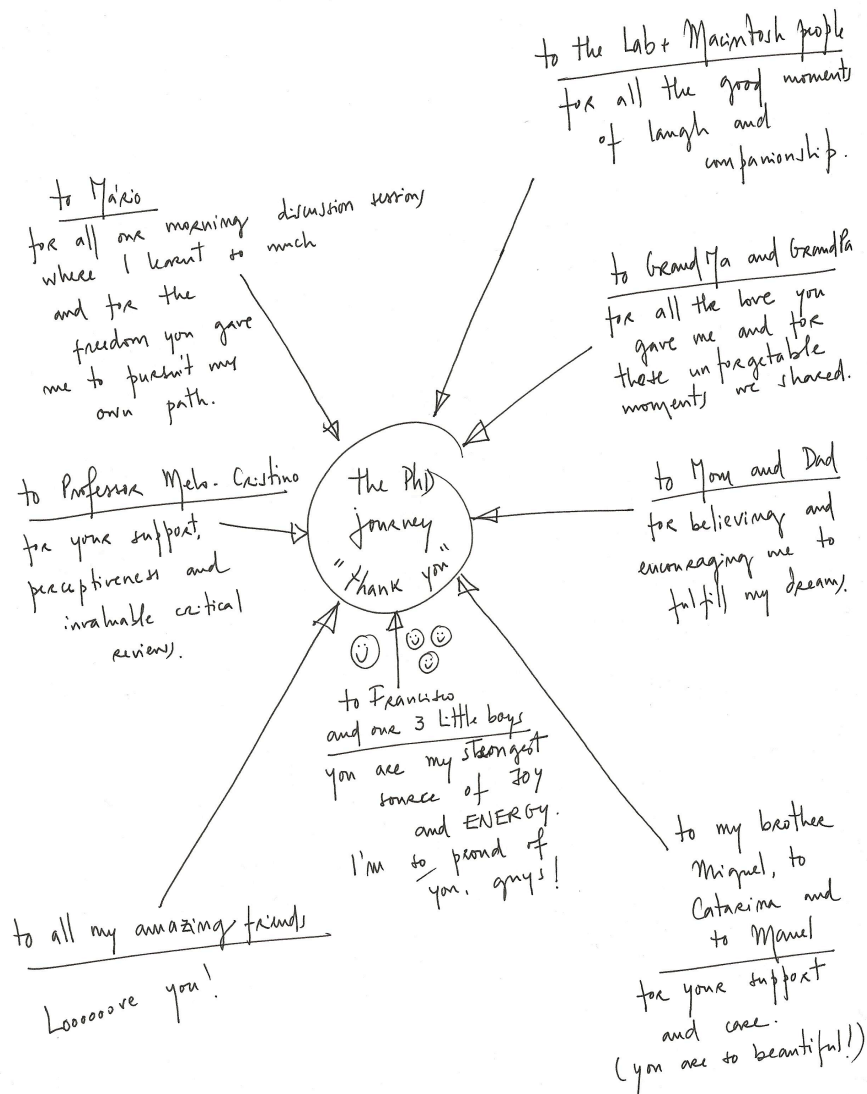 to the Lab + Macintosh people
for all the good moments
of laugh and
companionship.
to Mário
for all our morning discussion sessions
where I learnt so much
and for the
freedom you gave
me to pursuit my
own path.
to GrandMa and GrandPa
for all the love you
gave me and for
those unforgetable
moments we shared.
to Professor Melo-Cristino
for your support,
perceptiveness and
invaluable critical
reviews.
the PhD
journey
"thank you"
to Mom and Dad
for believing and
encouraging me to
fulfill my dreams.
to Francisco
and our 3 little boys
you are my strongest
source of JOY
and ENERGY.
I'm so proud of
you, guys!
to all my amazing friends
Looooove you!
to my brother
Miguel, to
Catarina and
to Manel
for your support
and care.
(you are so beautiful!)